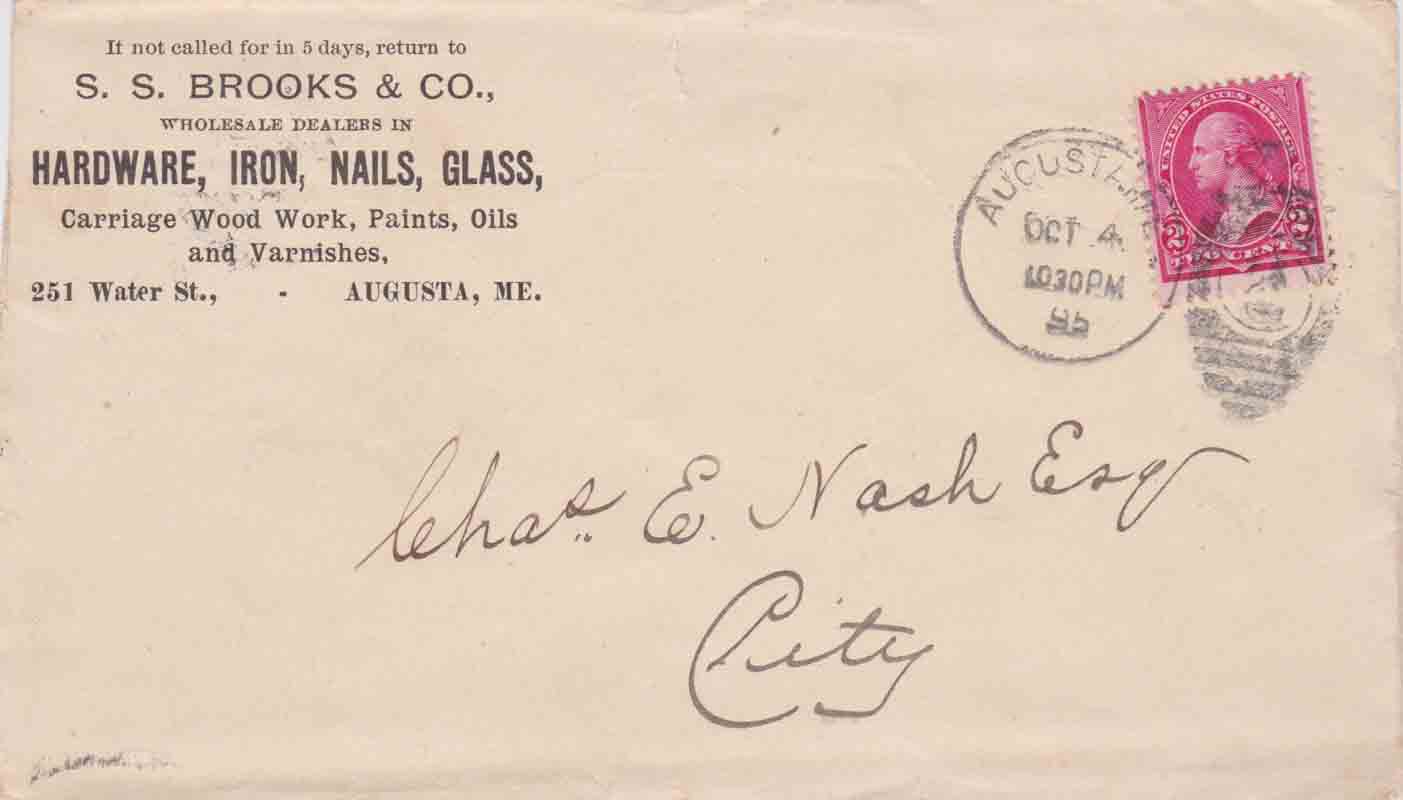 If not called for in 5 days, return to
S. S. BROOKS & CO.,
WHOLESALE DEALERS IN
HARDWARE, IRON, NAILS, GLASS,
Carriage Wood Work, Paints, Oils
and Varnishes,
251 Water St., - AUGUSTA, ME.
UNITED STATES POSTAGE
2 2
TWO CENTS
AUGUSTA, ME
OCT 4
1030PM
95
Chas. E. Nash Esq
City